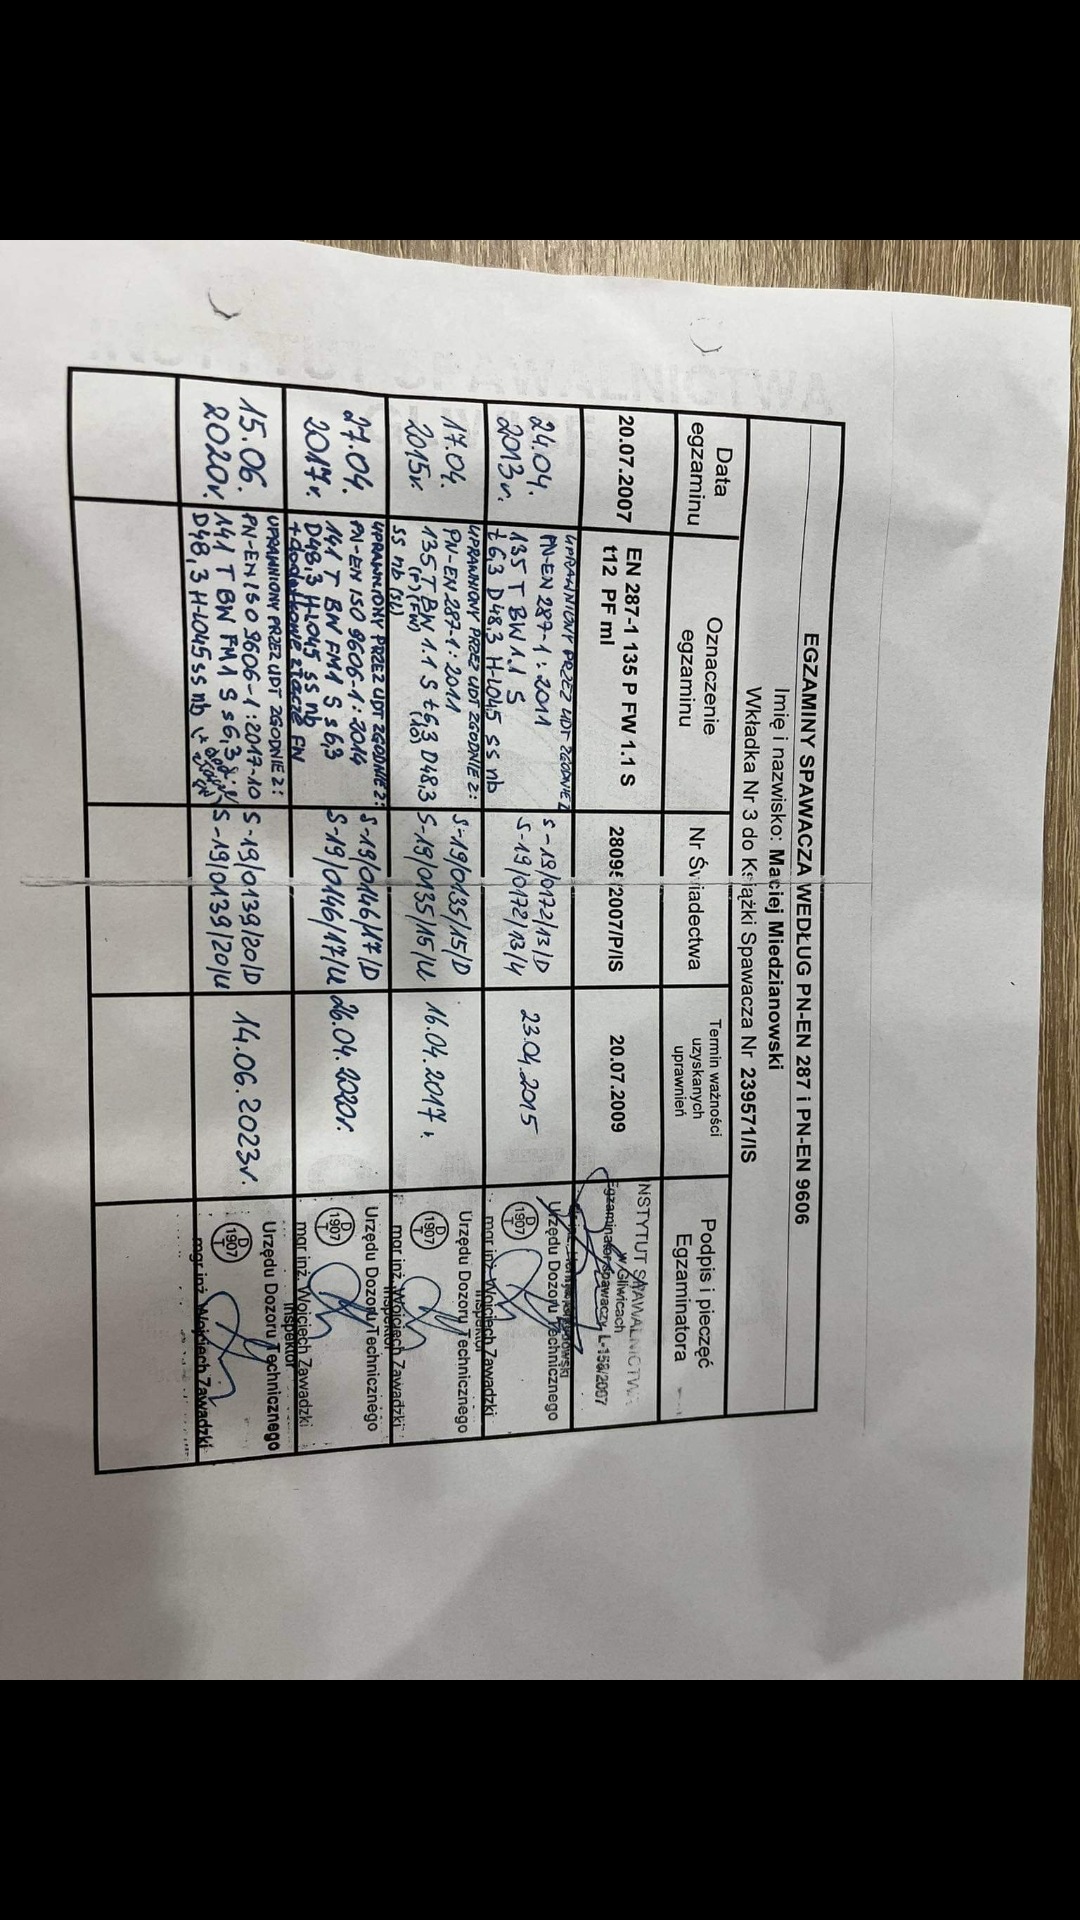 EGZAMINY SPAWACZA WEDŁUG PN-EN 287 i PN-EN 9606
Imię i nazwisko: Maciej Miedzianowski
Wkładka Nr 3 do Książki Spawacza Nr 239571/IS
Data
egzaminu
Oznaczenie
egzaminu
Nr Świadectwa
Termin ważności
uzyskanych
uprawnień
Podpis i pieczęć
Egzaminatora
20.07.2007
EN 287-1 135 P FW 1.1 S
t12 PF ml
2809 /2007/P/IS
20.07.2009
INSTYTUT SPAWALNICTWA
w Gliwicach
Egzaminator Spawaczy, L-158/2007
24.04.
2013r.
UPRAWNIONY PRZEZ UDT ZGODNIE Z
PN-EN 287-1:2011
135 T BW 1.1 S
t6,3 D48,3 H-L045 ss nb
S-19/0172/13/D
S-19/0172/13/U
23.04.2015
Urzędu Dozoru Technicznego
D
1907
T
Inspektor
mgr inż. Wojciech Zawadzki
17.04.
2015r.
UPRAWNIONY PRZEZ UDT ZGODNIE Z:
PN-EN 287-1:2011
135 T BW 1.1 S t6,3 D48,3
(P) (FW) (10)
ss nb (sl)
S-19/0135/15/D
S-19/0135/15/U
16.04.2017r.
Urzędu Dozoru Technicznego
D
1907
T
Inspektor
mgr inż. Wojciech Zawadzki
27.04.
2017r.
UPRAWNIONY PRZEZ UDT ZGODNIE Z:
PN-EN ISO 9606-1:2014
141 T BW FM1 S s6,3
D48,3 H-L045 ss nb
+ dodatkowe złącze FW
S-19/0146/17/D
S-19/0146/17/U
26.04.2020r.
Urzędu Dozoru Technicznego
D
1907
T
Inspektor
mgr inż. Wojciech Zawadzki
15.06.
2020r.
UPRAWNIONY PRZEZ UDT ZGODNIE Z:
PN-EN ISO 9606-1:2017-10
141 T BW FM1 S s6,3
D48,3 H-L045 ss nb
S-19/0139/20/D
S-19/0139/20/U
14.06.2023r.
Urzędu Dozoru Technicznego
D
1907
T
mgr inż. Wojciech Zawadzki